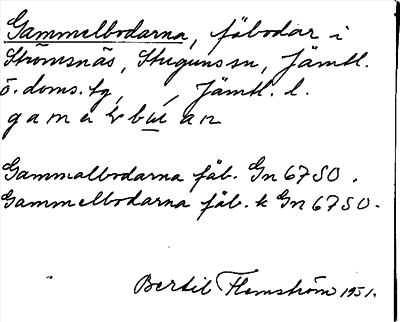 Gammelbodarna, fäbodar i
Strömsnäs, Stuguns sn, Jämtl.
ö. doms. tg, Jämtl. l.
Gammalbodarna fäb. Gn 67 SO.
Gammelbodarna fäb. k Gn 67 SO.
Bertil Flemström 1951.